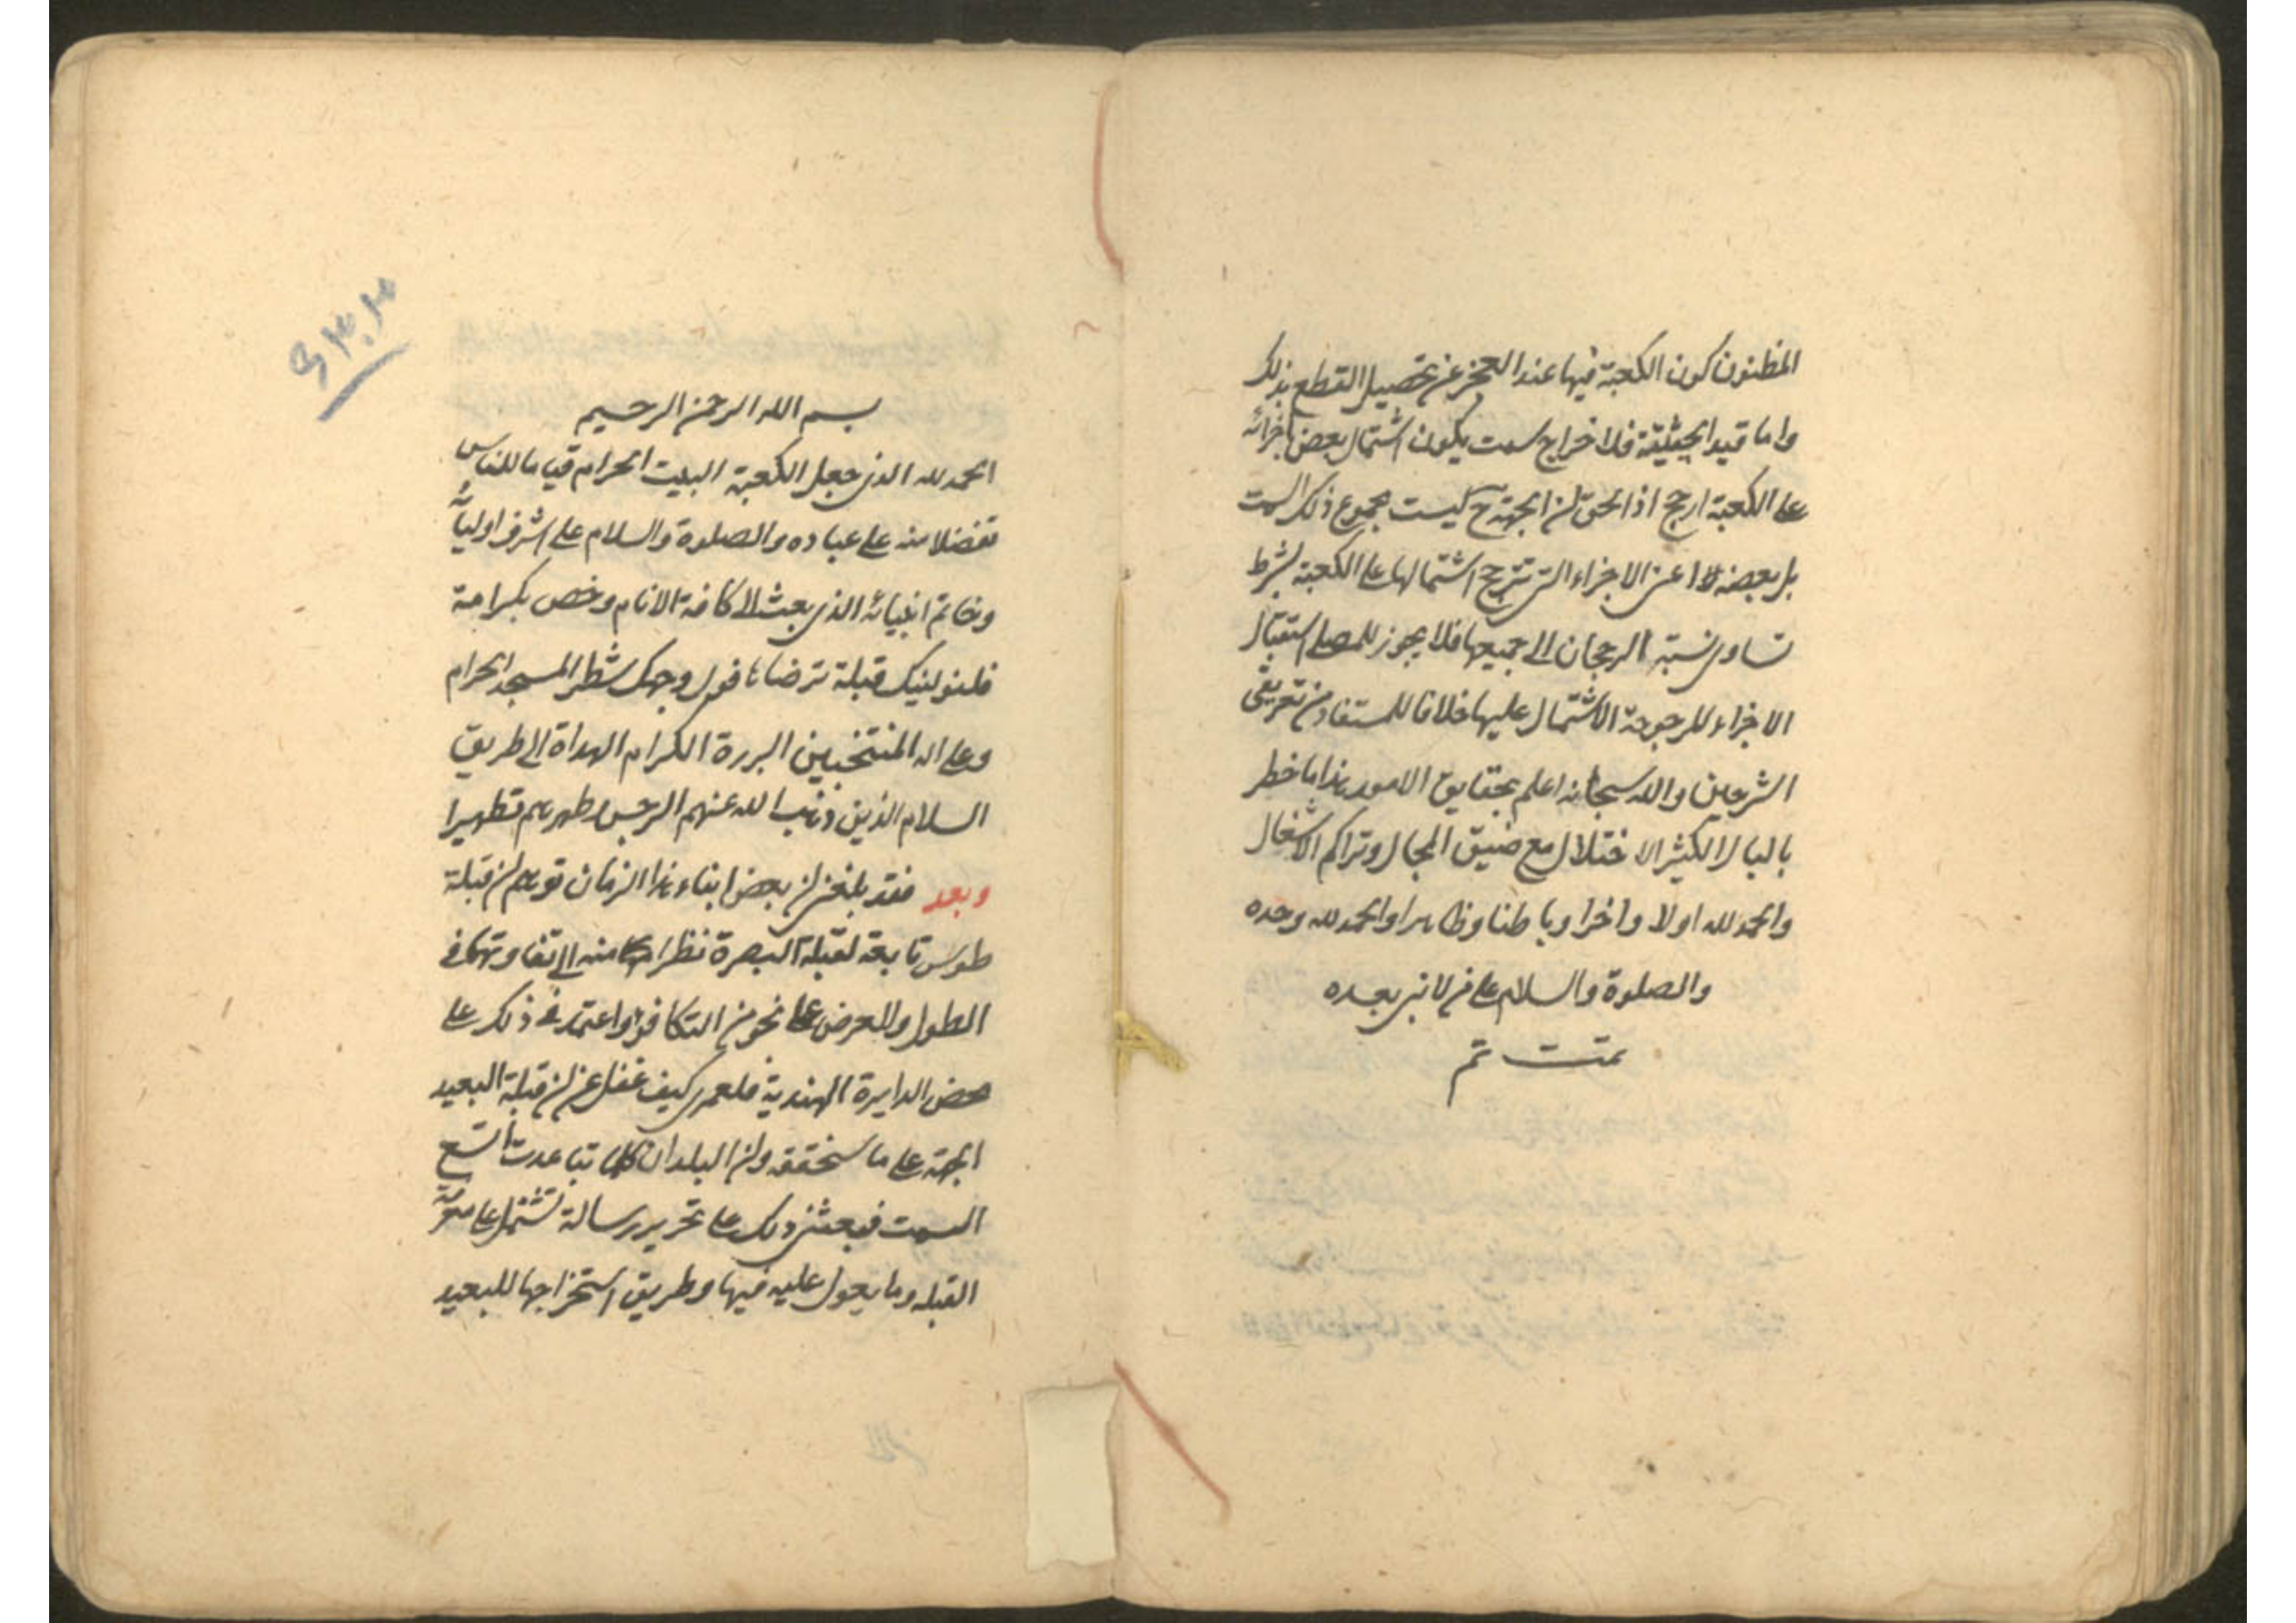 المظنون كون الكعبة فيها عند العجز عن تحصيل القطع بذلك
واما قيد الحيثية فلاخراج سمت يكون اشتمال بعض اجزائه
على الكعبة ارجح اذ الحق ان الجهة ح ليست مجموع ذلك السمت
بل بعضه اعنى الاجزاء التى تترجح اشتمالها على الكعبة بشرط
تساوى نسبة الرجحان الى جميعها فلا يجوز للمصلى استقبال
الاجزاء المرجوحة الاشتمال عليها خلافا للمستفاد من تعريفى
الشرحين والله سبحانه اعلم بحقايق الامور هذا ما خطر
بالبال الكثير الاختلال مع ضيق المجال وتراكم الاشغال
والحمد لله اولا واخرا وباطنا وظاهرا والحمد لله وحده
والصلوة والسلام على من لا نبى بعده
تمت تم
بسم الله الرحمن الرحيم
الحمد لله الذى جعل الكعبة البيت الحرام قياما للناس
تفضلا منه على عباده والصلوة والسلام على اشرف اوليائه
وخاتم انبيائه الذى بعث الى كافة الانام وخص بكرامة
فلنولينك قبلة ترضاها فول وجهك شطر المسجد الحرام
وعلى اله المنتخبين البررة الكرام الهداة الى طريق
السلام الذين ذهب الله عنهم الرجس وطهرهم تطهيرا
وبعد فقد بلغنى ان بعض ابناء هذا الزمان توهم ان قبلة
طوس تابعة لقبلة البصرة نظرا منه الى تفاوتهما فى
الطول والعرض على نحو من التكافؤ واعتمد فى ذلك على
محض الدايرة الهندية فلعمرى كيف غفل عن ان قبلة البعيد
الجهة على ما سنحققه وان البلدان كلما تباعدت اتسع
السمت فبعثنى ذلك على تحرير رسالة تشتمل على معرفة
القبله وما يعول عليه فيها وطريق استخراجها للبعيد